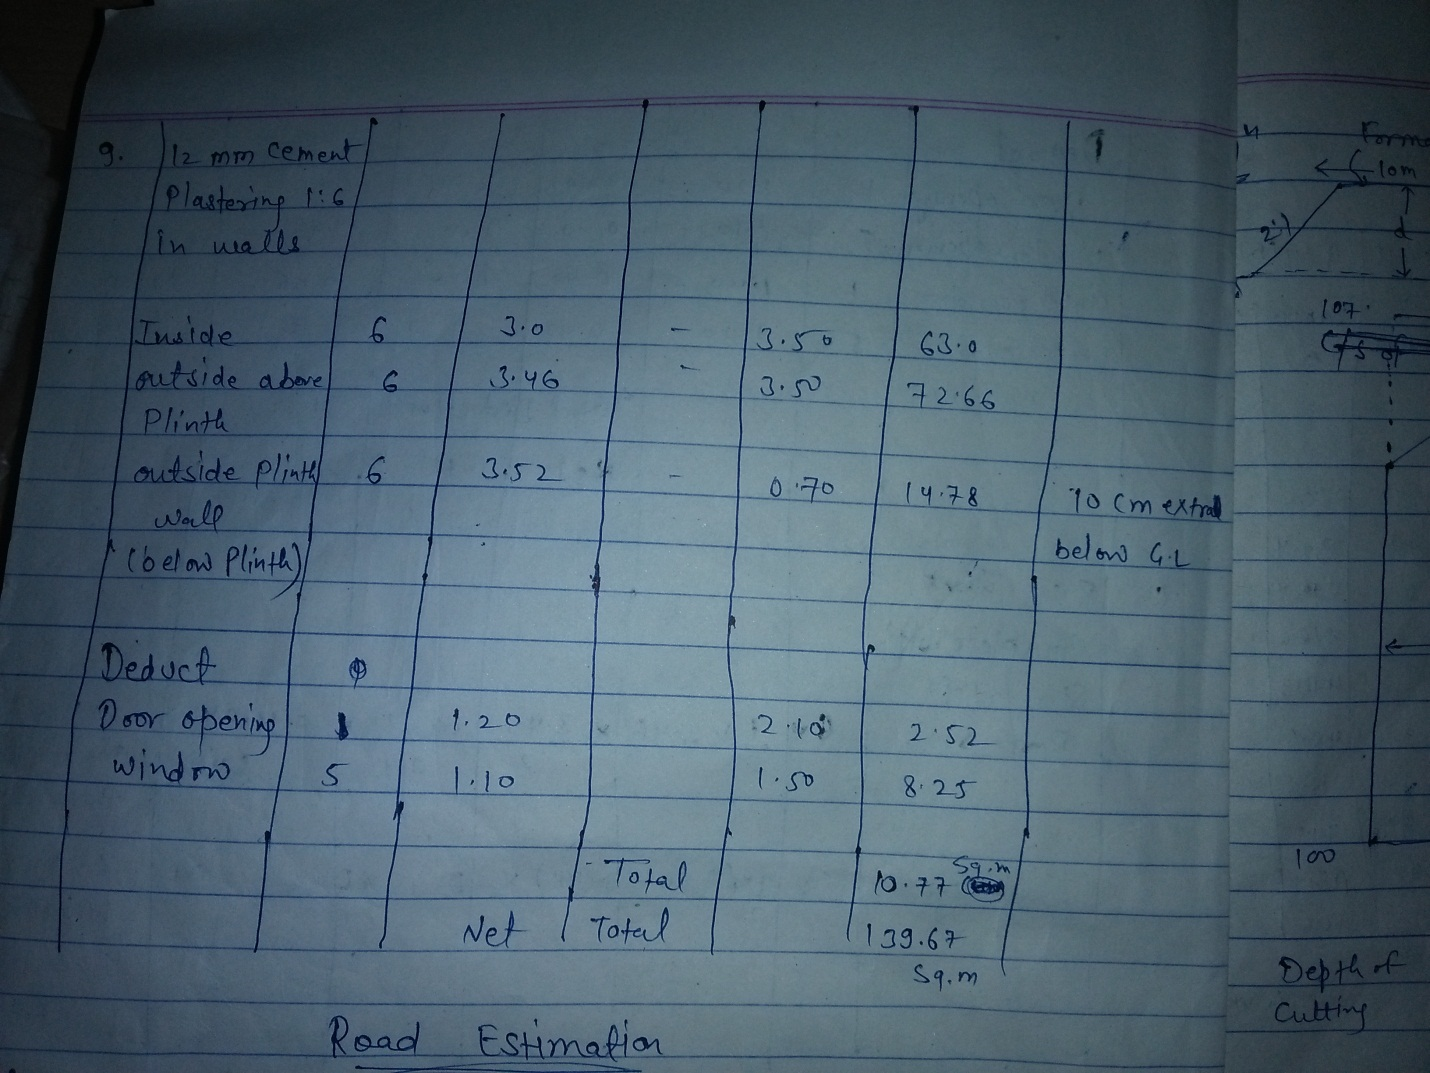 9. 12 mm cement
Plastering 1:6
in walls
Inside 6 3.0 - 3.50 63.0
outside above 6 3.46 - 3.50 72.66
Plinth
outside plinth 6 3.52 - 0.70 14.78 10 cm extra
wall below G.L
(below Plinth)
Deduct
Door opening 1 1.20 2.10 2.52
window 5 1.10 1.50 8.25
Total 10.77 Sq.m
Net Total 139.67
Sq.m
Road Estimation
10m
d
107.
100
Depth of
Cutting